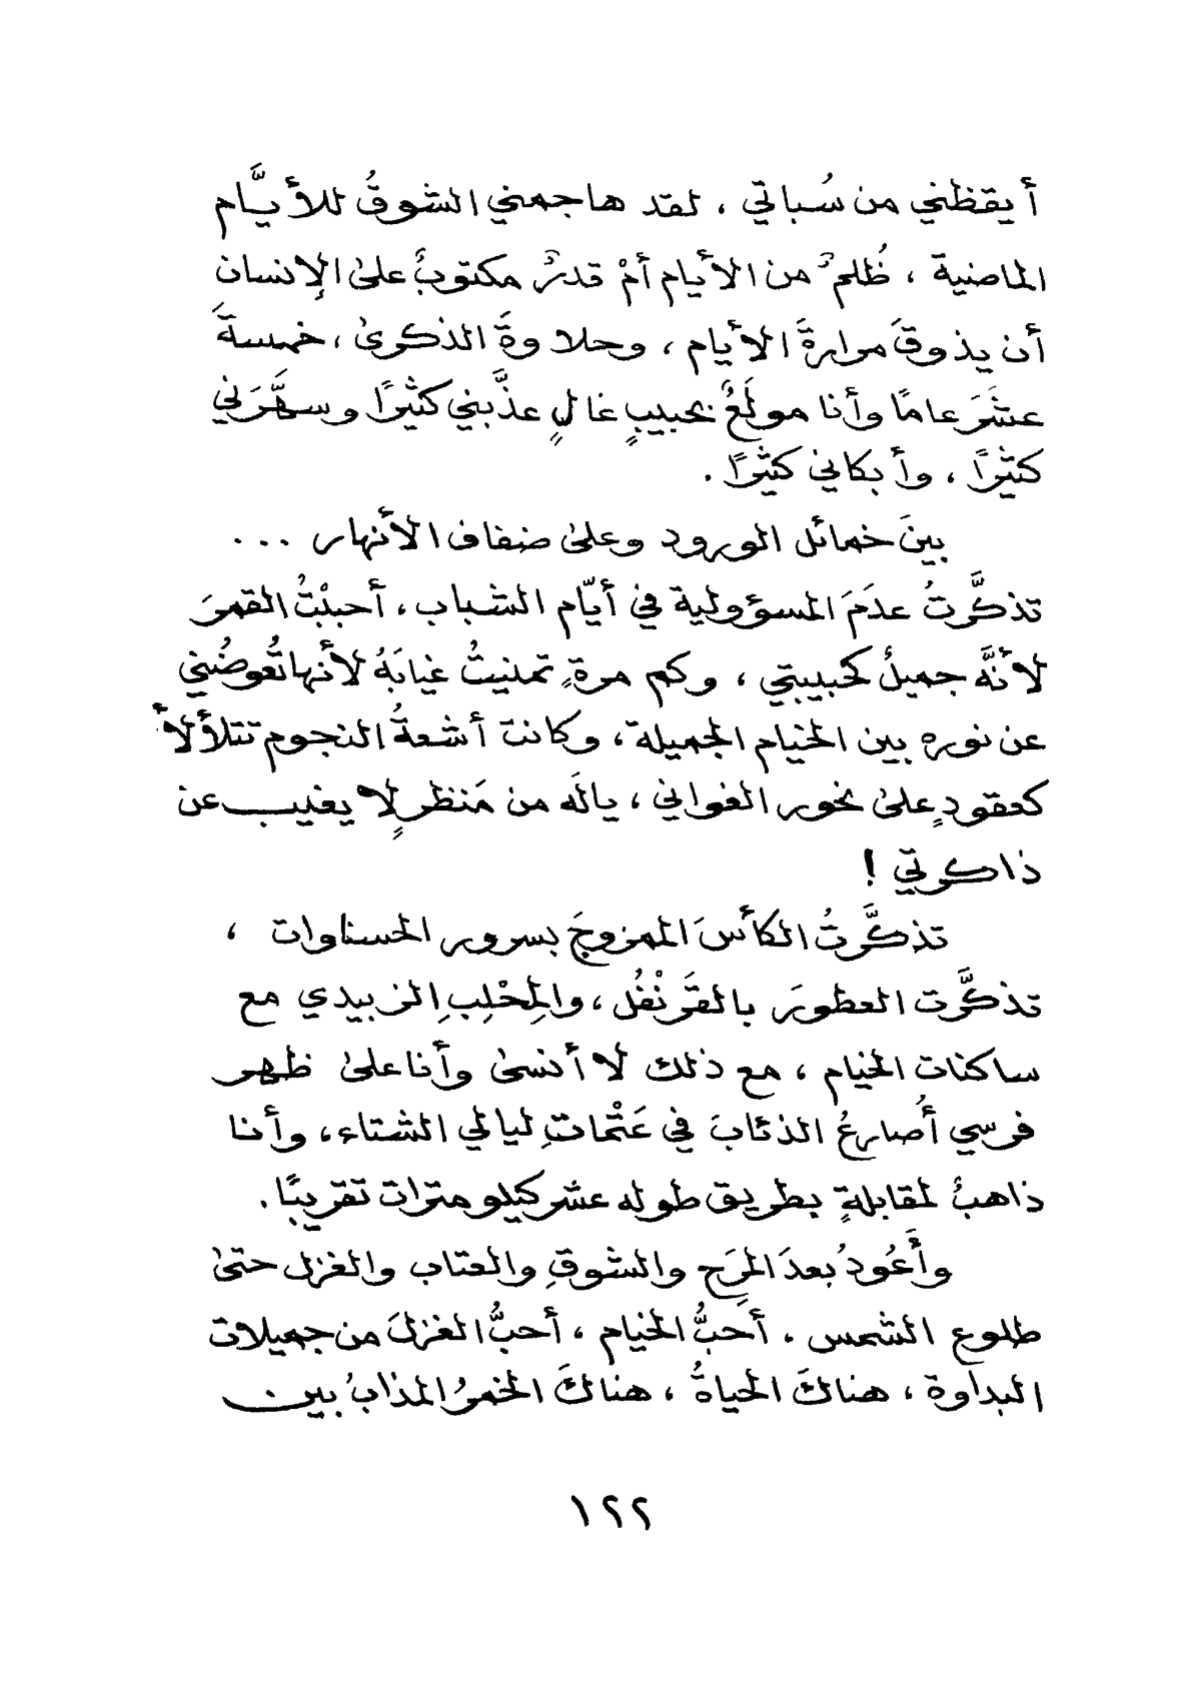 أيقظني من سُباتي ، لقد هاجمني الشوقُ للأيَّام
الماضية ، ظُلمٌ من الأيام أمْ قدرٌ مكتوبٌ على الإنسان
أن يذوقَ مرارةَ الأيام ، وحلاوةَ الذكرى ، خمسةَ
عشَرَ عامًا وأنا مولَعٌ بحبيبٍ غالٍ عذَّبني كثيرًا وسهَّرَني
كثيرًا ، وأبكاني كثيرًا .
بينَ خمائل الورود وعلى ضفاف الأنهار ...
تذكَّرتُ عدَمَ المسؤولية في أيّام الشباب ، أحببْتُ القمرَ
لأنَّه جميلٌ كحبيبتي ، وكم مرةٍ تمنيتُ غيابَهُ لأنها تُعوضُني
عن نوره بين الخيام الجميلة ، وكانت أشعةُ النجوم تتلألأُ
كعقودٍ على نحور الغواني ، يالَه من مَنظرٍ لا يغيب عن
ذاكرتي !
تذكَّرتُ الكأسَ الممزوجَ بسرور الحسناوات ،
تذكَّرت العطورَ بالقَرَنْفُل ، والمِحْلِبِ الزبيدي مع
ساكنات الخيام ، مع ذلك لا أنسى وأنا على ظهر
فرسي أُصارعُ الذئابَ في عَتْماتِ ليالي الشتاء ، وأنا
ذاهبٌ لمقابلةٍ بطريق طوله عشر كيلو مترات تقريبًا .
وأَعُودُ بعدَ المَرَحِ والشوقِ والعتاب والغزل حتى
طلوع الشمس . أحبُّ الخيام ، أحبُّ الغزلَ من جميلات
البداوة ، هناكَ الحياةُ ، هناكَ الخمرُ المذابُ بين
١٢٢